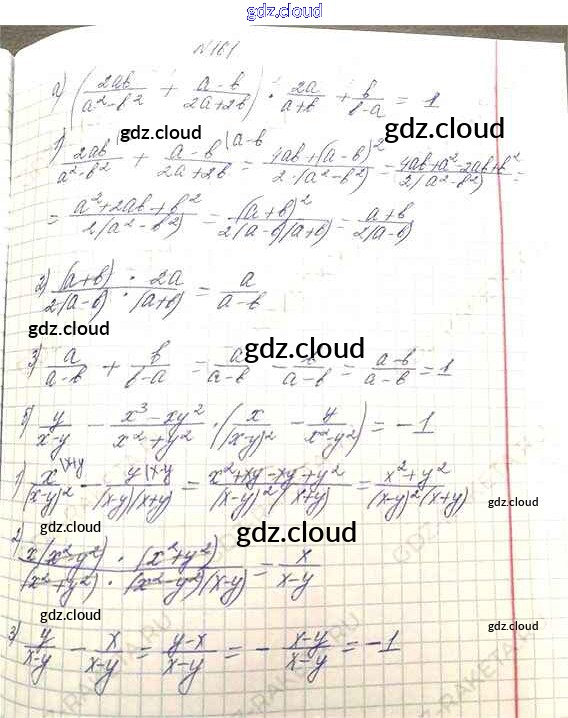 gdz.cloud
N 161
а) (2ab/(a²-b²) + (a-b)/(2a+2b)) · 2a/(a+b) + b/(b-a) = 1
gdz.cloud gdz.cloud
1) 2ab/(a²-b²) + (a-b)/(2a+2b) |a-b = (4ab+(a-b)²)/(2·(a²-b²)) = (4ab+a²-2ab+b²)/(2(a²-b²)) =
= (a²+2ab+b²)/(2(a²-b²)) = (a+b)²/(2(a-b)(a+b)) = (a+b)/(2(a-b))
gdz.cloud gdz.cloud
2) (a+b) · 2a/(2(a-b) · (a+b)) = a/(a-b)
gdz.cloud
gdz.cloud
3) a/(a-b) + b/(b-a) = a/(a-b) - b/(a-b) = (a-b)/(a-b) = 1
б) y/(x-y) - (x³-xy²)/(x²+y²) · (x/(x-y)² - y/(x²-y²)) = -1
1) x |x+y/(x-y)² - y |x-y/((x-y)(x+y)) = (x²+xy-xy+y²)/((x-y)²(x+y)) = (x²+y²)/((x-y)²(x+y))
gdz.cloud
gdz.cloud
2) x(x²-y²) · (x²+y²)/((x²+y²) · (x²-y²)(x-y)) = x/(x-y)
gdz.cloud
gdz.cloud
3) y/(x-y) - x/(x-y) = (y-x)/(x-y) = - (x-y)/(x-y) = -1
gdz.cloud